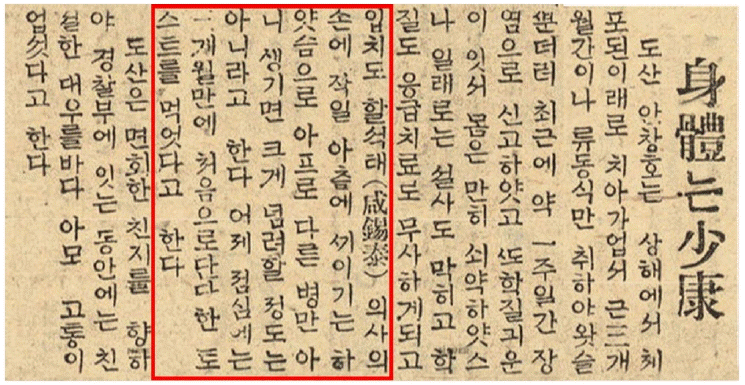 身體는少康
도산 안창호는 상해에서 체
포된이래로 치아가업서 근三개
월간이나 류동식만 취하야왓슬
ᄲᅮᆫ더러 최근에 약 一주일간 장
염으로 신고하얏고 ᄯᅩ학질긔운
이 잇서 몸은 만히 쇠약하얏스
나 일래로는 설사도 막히고 학
질도 응급치료로 무사하게되고
입치도 할석태(咸錫泰) 의사의
손에 작일 아츰에 ᄭᅵ이기는 하
얏슴으로 아프로 다른 병만 아
니 생기면 크게 념려할 정도는
아니라고 한다 어제 점심에는
개월만에 처음으로단다 한 토
스트를 먹엇다고 한다
도산은 면회한 친지를 향하
야 경찰부에 잇는 동안에는 친
절한 대우를바다 아모 고통이
업섯다고 한다